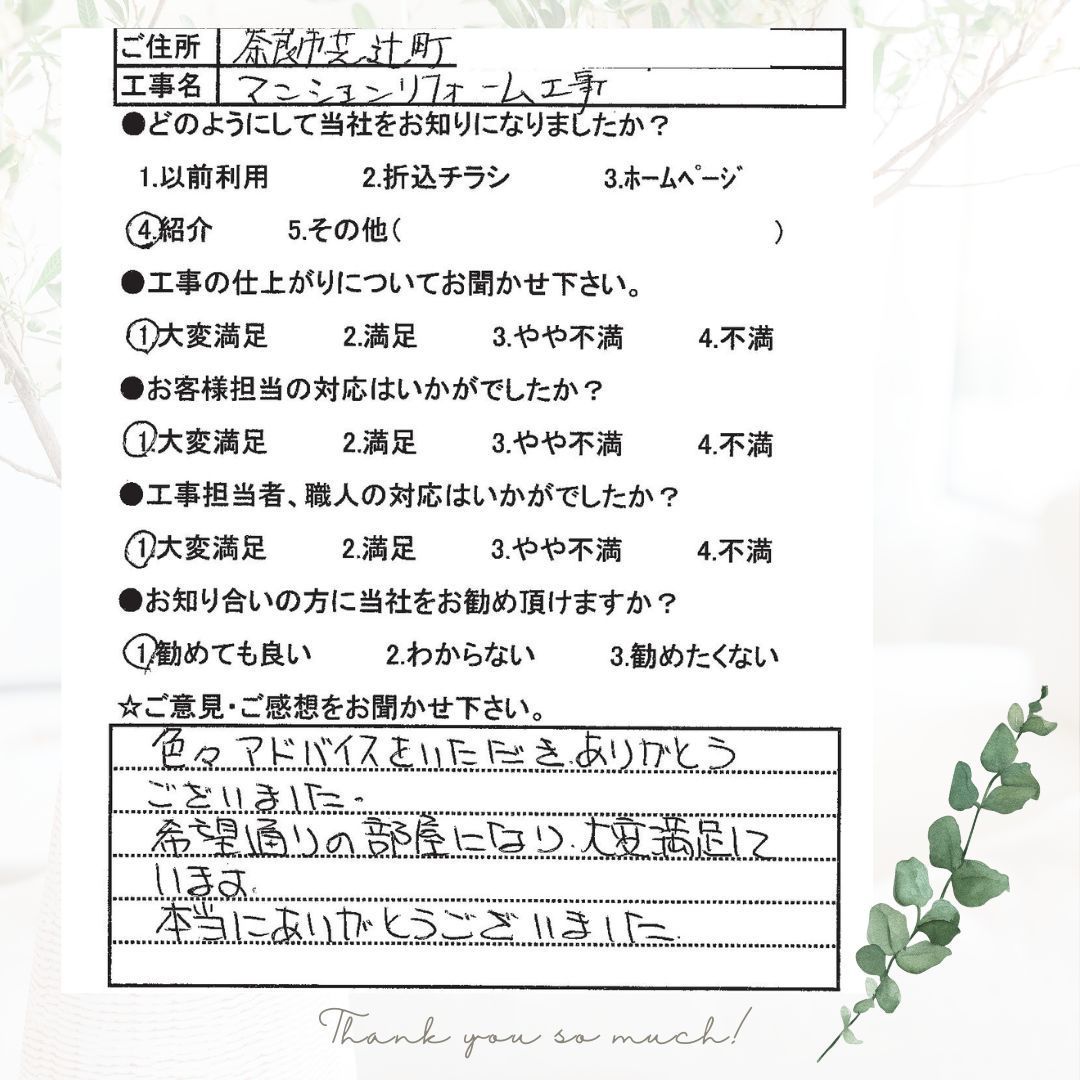 ご住所 奈良市芝辻町
工事名 マンションリフォーム工事
●どのようにして当社をお知りになりましたか？
1.以前利用 2.折込チラシ 3.ﾎｰﾑﾍﾟｰｼﾞ
4.紹介 5.その他( )
●工事の仕上がりについてお聞かせ下さい。
1.大変満足 2.満足 3.やや不満 4.不満
●お客様担当の対応はいかがでしたか？
1.大変満足 2.満足 3.やや不満 4.不満
●工事担当者、職人の対応はいかがでしたか？
1.大変満足 2.満足 3.やや不満 4.不満
●お知り合いの方に当社をお勧め頂けますか？
1.勧めても良い 2.わからない 3.勧めたくない
☆ご意見・ご感想をお聞かせ下さい。
色々アドバイスをいただき、ありがとう
ございました。
希望通りの部屋になり、大変満足して
います。
本当にありがとうございました。
Thank you so much!